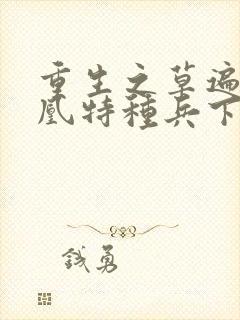 重生之草遍
凰特種兵下
钱勇